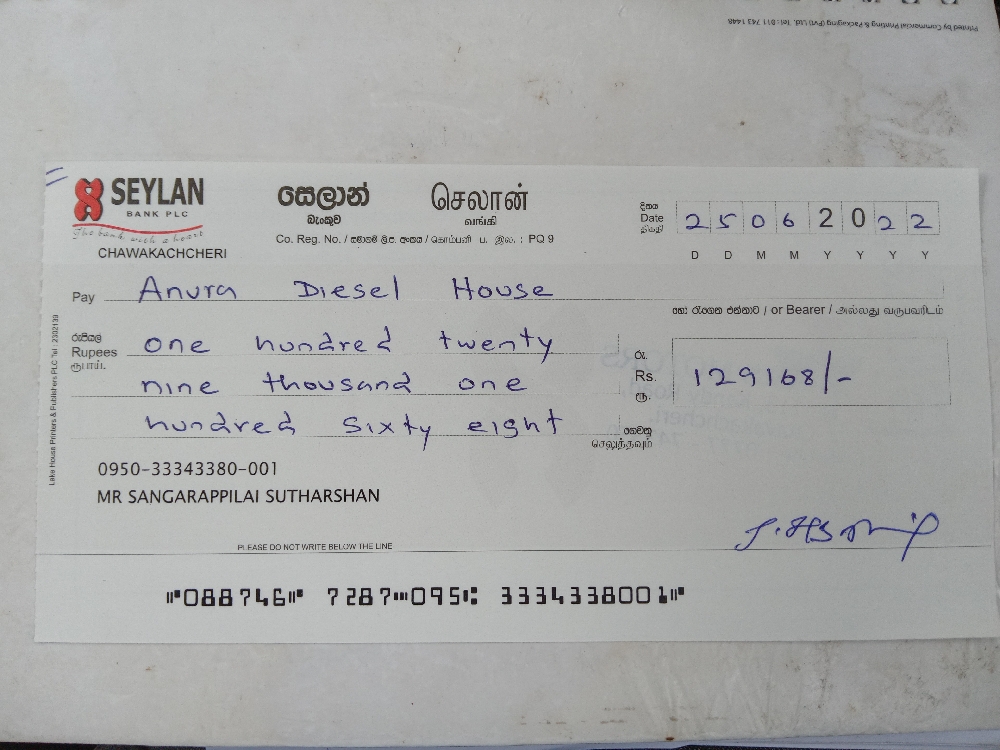 Printed by Commercial Printing & Packaging (Pvt) Ltd. Tel : 011 743 1448
SEYLAN
BANK PLC
The bank with a heart
CHAWAKACHCHERI
සෙලාන්
බැංකුව
செலான்
வங்கி
Co. Reg. No. / සමාගම් ලි.ප. අංකය / கொம்பனி ப. இல. : PQ 9
දිනය
Date 25 06 2022
திகதி
D D M M Y Y Y Y
Pay Anura Diesel House
හෝ රැගෙන එන්නාට / or Bearer / அல்லது வருபவரிடம்
රුපියල්
Rupees one hundred twenty
ரூபாய்.
nine thousand one
hundred sixty eight
ගෙවනු
செலுத்தவும்
රු.
Rs. 129168/-
ரூ.
0950-33343380-001
MR SANGARAPPILAI SUTHARSHAN
PLEASE DO NOT WRITE BELOW THE LINE
Lake House Printers & Publishers PLC Tel : 2302139
⑈088746⑈ 7287⑉095⑆ 3334338001⑈